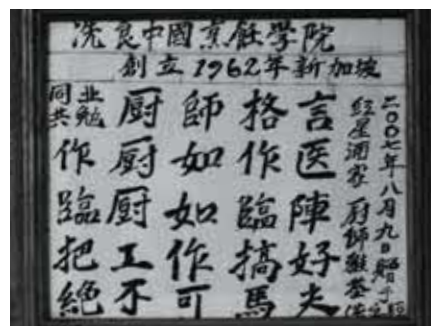 冼良中國烹飪學院
創立1962年新加坡
二〇〇七年八月九日贈于
紅星酒家 厨師
言医陣好夫
格作臨搞馬
師如如作可
厨厨厨工不
同业
共勉
作臨把絶